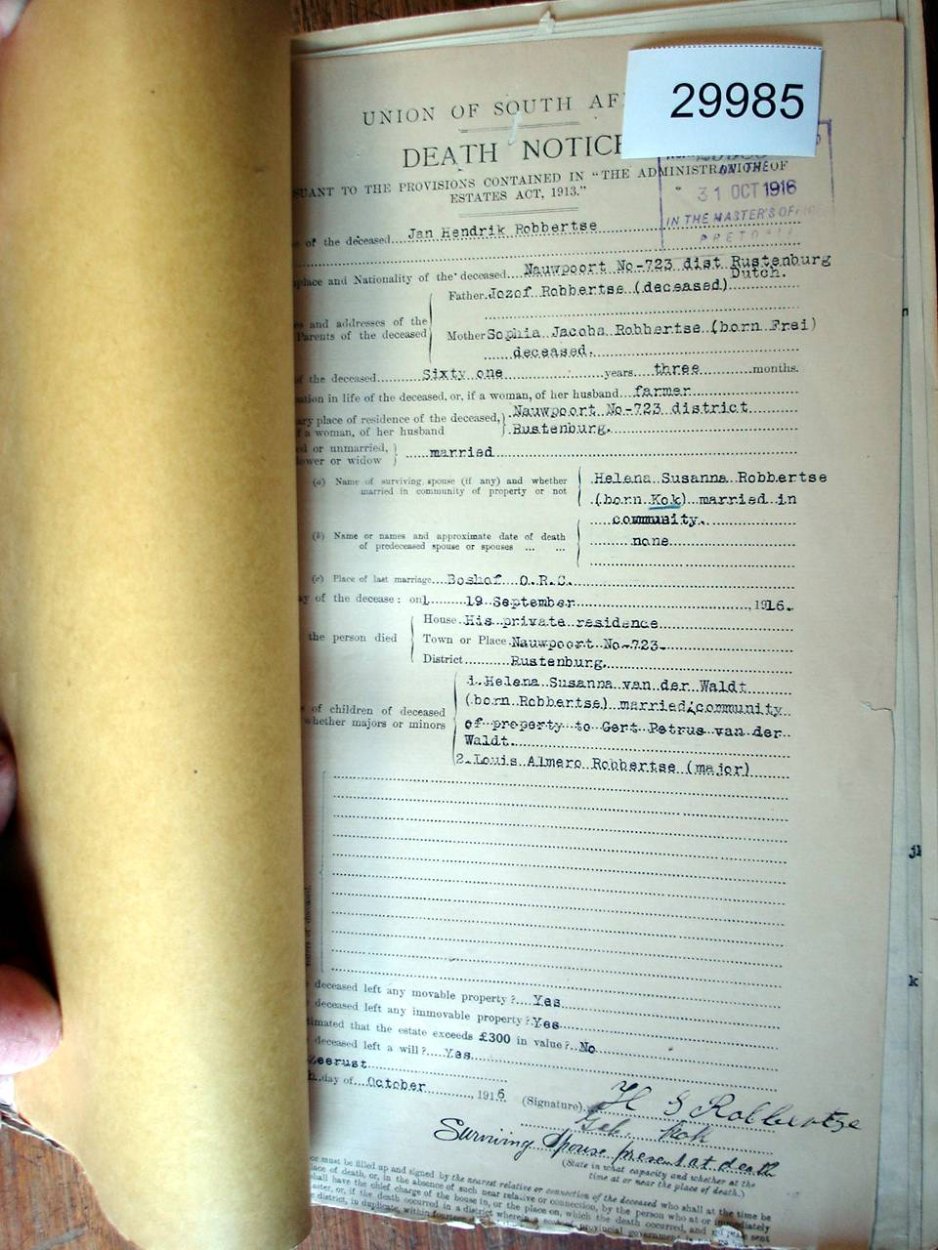 29985
UNION OF SOUTH AF
DEATH NOTICE
SUANT TO THE PROVISIONS CONTAINED IN "THE ADMINISTRATION OF
ESTATES ACT, 1913."
ON THE
31 OCT 1916
IN THE MASTER'S OFFICE
PRETORIA
of the deceased Jan Hendrik Robbertse
place and Nationality of the deceased Nauwpoort No-723 dist Rustenburg
Dutch.
Father Jozef Robbertse (deceased)
es and addresses of the
Parents of the deceased
Mother Sophia Jacoba Robbertse (born Frei)
deceased.
of the deceased Sixty one years three months.
ation in life of the deceased, or, if a woman, of her husband farmer
ary place of residence of the deceased, Nauwpoort No-723 district
f a woman, of her husband Rustenburg.
ed or unmarried,
ower or widow married
(a) Name of surviving spouse (if any) and whether Helena Susanna Robbertse
married in community of property or not (born Kok) married in
community.
(b) Name or names and approximate date of death none
of predeceased spouse or spouses ... ...
(c) Place of last marriage Boshof O.R.C.
ay of the decease: on 19 September, 1916.
House His private residence
the person died Town or Place Nauwpoort No-723-
District Rustenburg.
1. Helena Susanna van der Waldt
(born Robbertse) married/community
of children of deceased
whether majors or minors
of property to Gert Petrus van der
Waldt.
2. Louis Almero Robbertse (major)
deceased left any movable property? Yes
deceased left any immovable property? Yes
timated that the estate exceeds £300 in value? No
deceased left a will? Yes
Zeerust
day of October, 1916
(Signature) H S Robbertze
Geb. Kok
Surviving Spouse present at death
(State in what capacity and whether at the
time at or near the place of death.)
ce must be filled up and signed by the nearest relative or connection of the deceased who shall at the
place of death, or, in the absence of such near relative or connection, by the person who at or immediately
shall have the chief charge of the house in, or the place on, which the death occurred, and